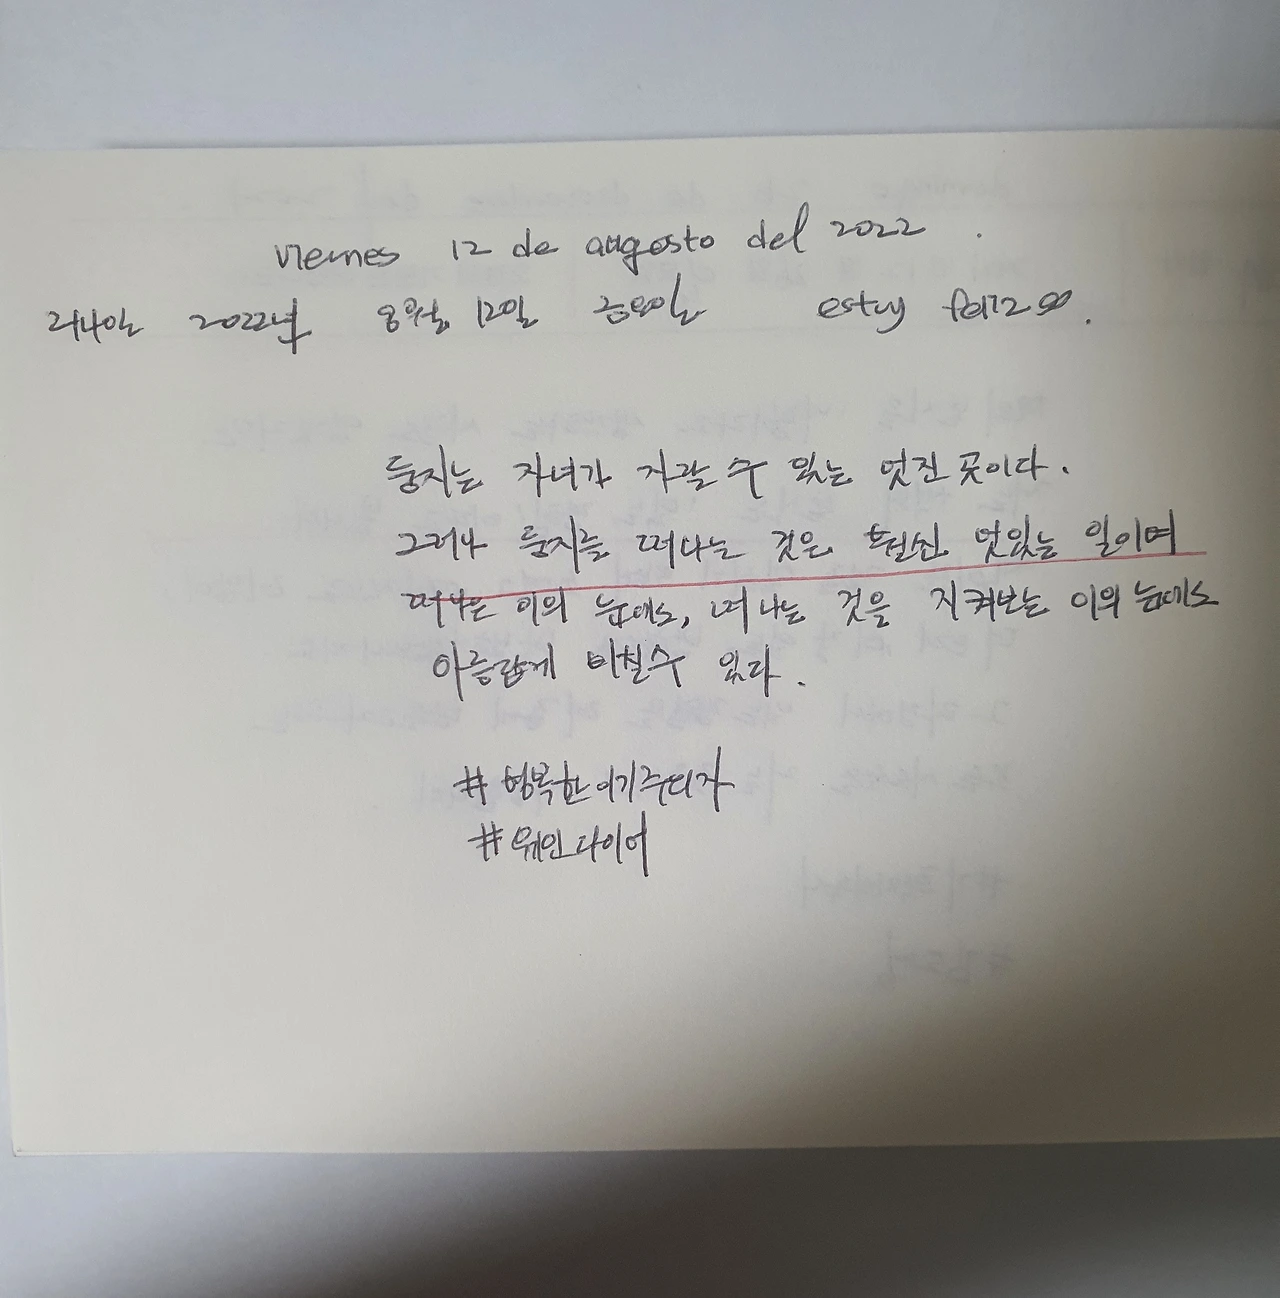 viernes 12 de augosto del 2022.
2022년 8월 12일 금요일 estoy feliz
둥지는 자녀가 자랄 수 있는 멋진 곳이다.
그러나 둥지를 떠나는 것은 훨씬 멋있는 일이며
떠나는 이의 눈에도, 떠나는 것을 지켜보는 이의 눈에도
아름답게 비칠 수 있다.
#행복한 이기주의자
#웨인 다이어